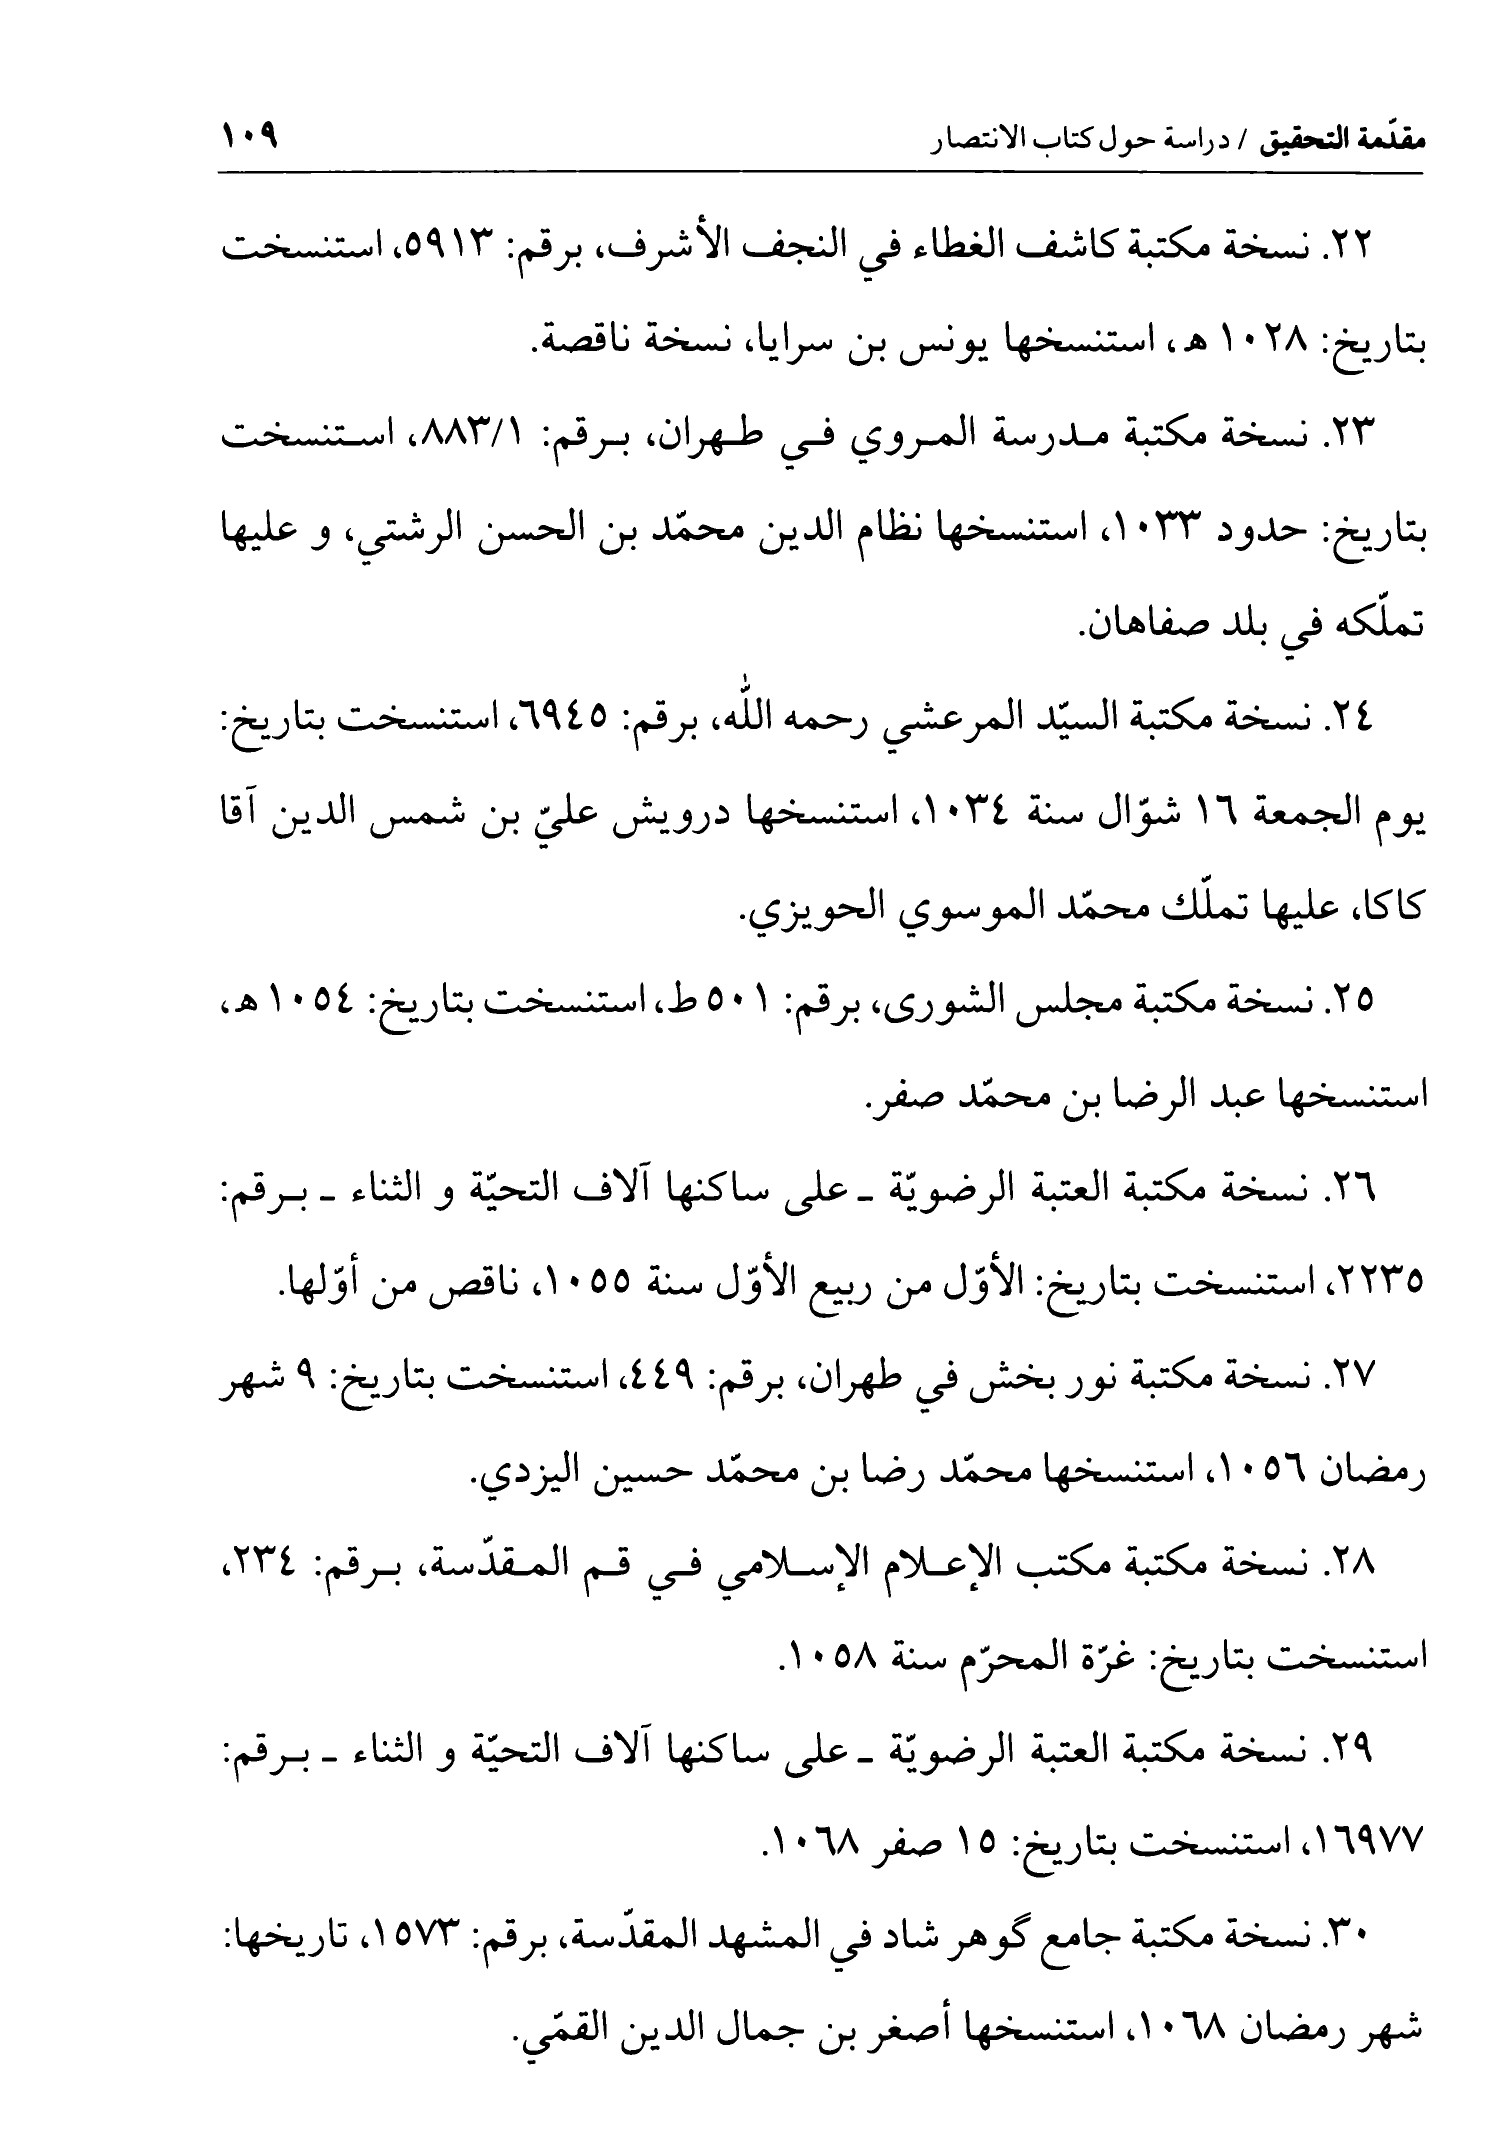 مقدّمة التحقيق / دراسة حول كتاب الانتصار ١٠٩
٢٢. نسخة مكتبة كاشف الغطاء في النجف الأشرف، برقم: ٥٩١٣، استنسخت
بتاريخ: ١٠٢٨ هـ، استنسخها يونس بن سرايا، نسخة ناقصة.
٢٣. نسخة مكتبة مـدرسة المـروي فـي طـهران، بـرقم: ٨٨٣/١، اسـتنسخت
بتاريخ: حدود ١٠٣٣، استنسخها نظام الدين محمّد بن الحسن الرشتي، و عليها
تملّكه في بلد صفاهان.
٢٤. نسخة مكتبة السيّد المرعشي رحمه اللّٰه، برقم: ٦٩٤٥، استنسخت بتاريخ:
يوم الجمعة ١٦ شوّال سنة ١٠٣٤، استنسخها درويش عليّ بن شمس الدين آقا
كاكا، عليها تملّك محمّد الموسوي الحويزي.
٢٥. نسخة مكتبة مجلس الشورى، برقم: ٥٠١ ط، استنسخت بتاريخ: ١٠٥٤ هـ،
استنسخها عبد الرضا بن محمّد صفر.
٢٦. نسخة مكتبة العتبة الرضويّة ـ على ساكنها آلاف التحيّة و الثناء ـ بـرقم:
٢٢٣٥، استنسخت بتاريخ: الأوّل من ربيع الأوّل سنة ١٠٥٥، ناقص من أوّلها.
٢٧. نسخة مكتبة نور بخش في طهران، برقم: ٤٤٩، استنسخت بتاريخ: ٩ شهر
رمضان ١٠٥٦، استنسخها محمّد رضا بن محمّد حسين اليزدي.
٢٨. نسخة مكتبة مكتب الإعـلام الإسـلامي فـي قـم المـقدّسة، بـرقم: ٢٣٤،
استنسخت بتاريخ: غرّة المحرّم سنة ١٠٥٨.
٢٩. نسخة مكتبة العتبة الرضويّة ـ على ساكنها آلاف التحيّة و الثناء ـ بـرقم:
١٦٩٧٧، استنسخت بتاريخ: ١٥ صفر ١٠٦٨.
٣٠. نسخة مكتبة جامع گوهر شاد في المشهد المقدّسة، برقم: ١٥٧٣، تاريخها:
شهر رمضان ١٠٦٨، استنسخها أصغر بن جمال الدين القمّي.